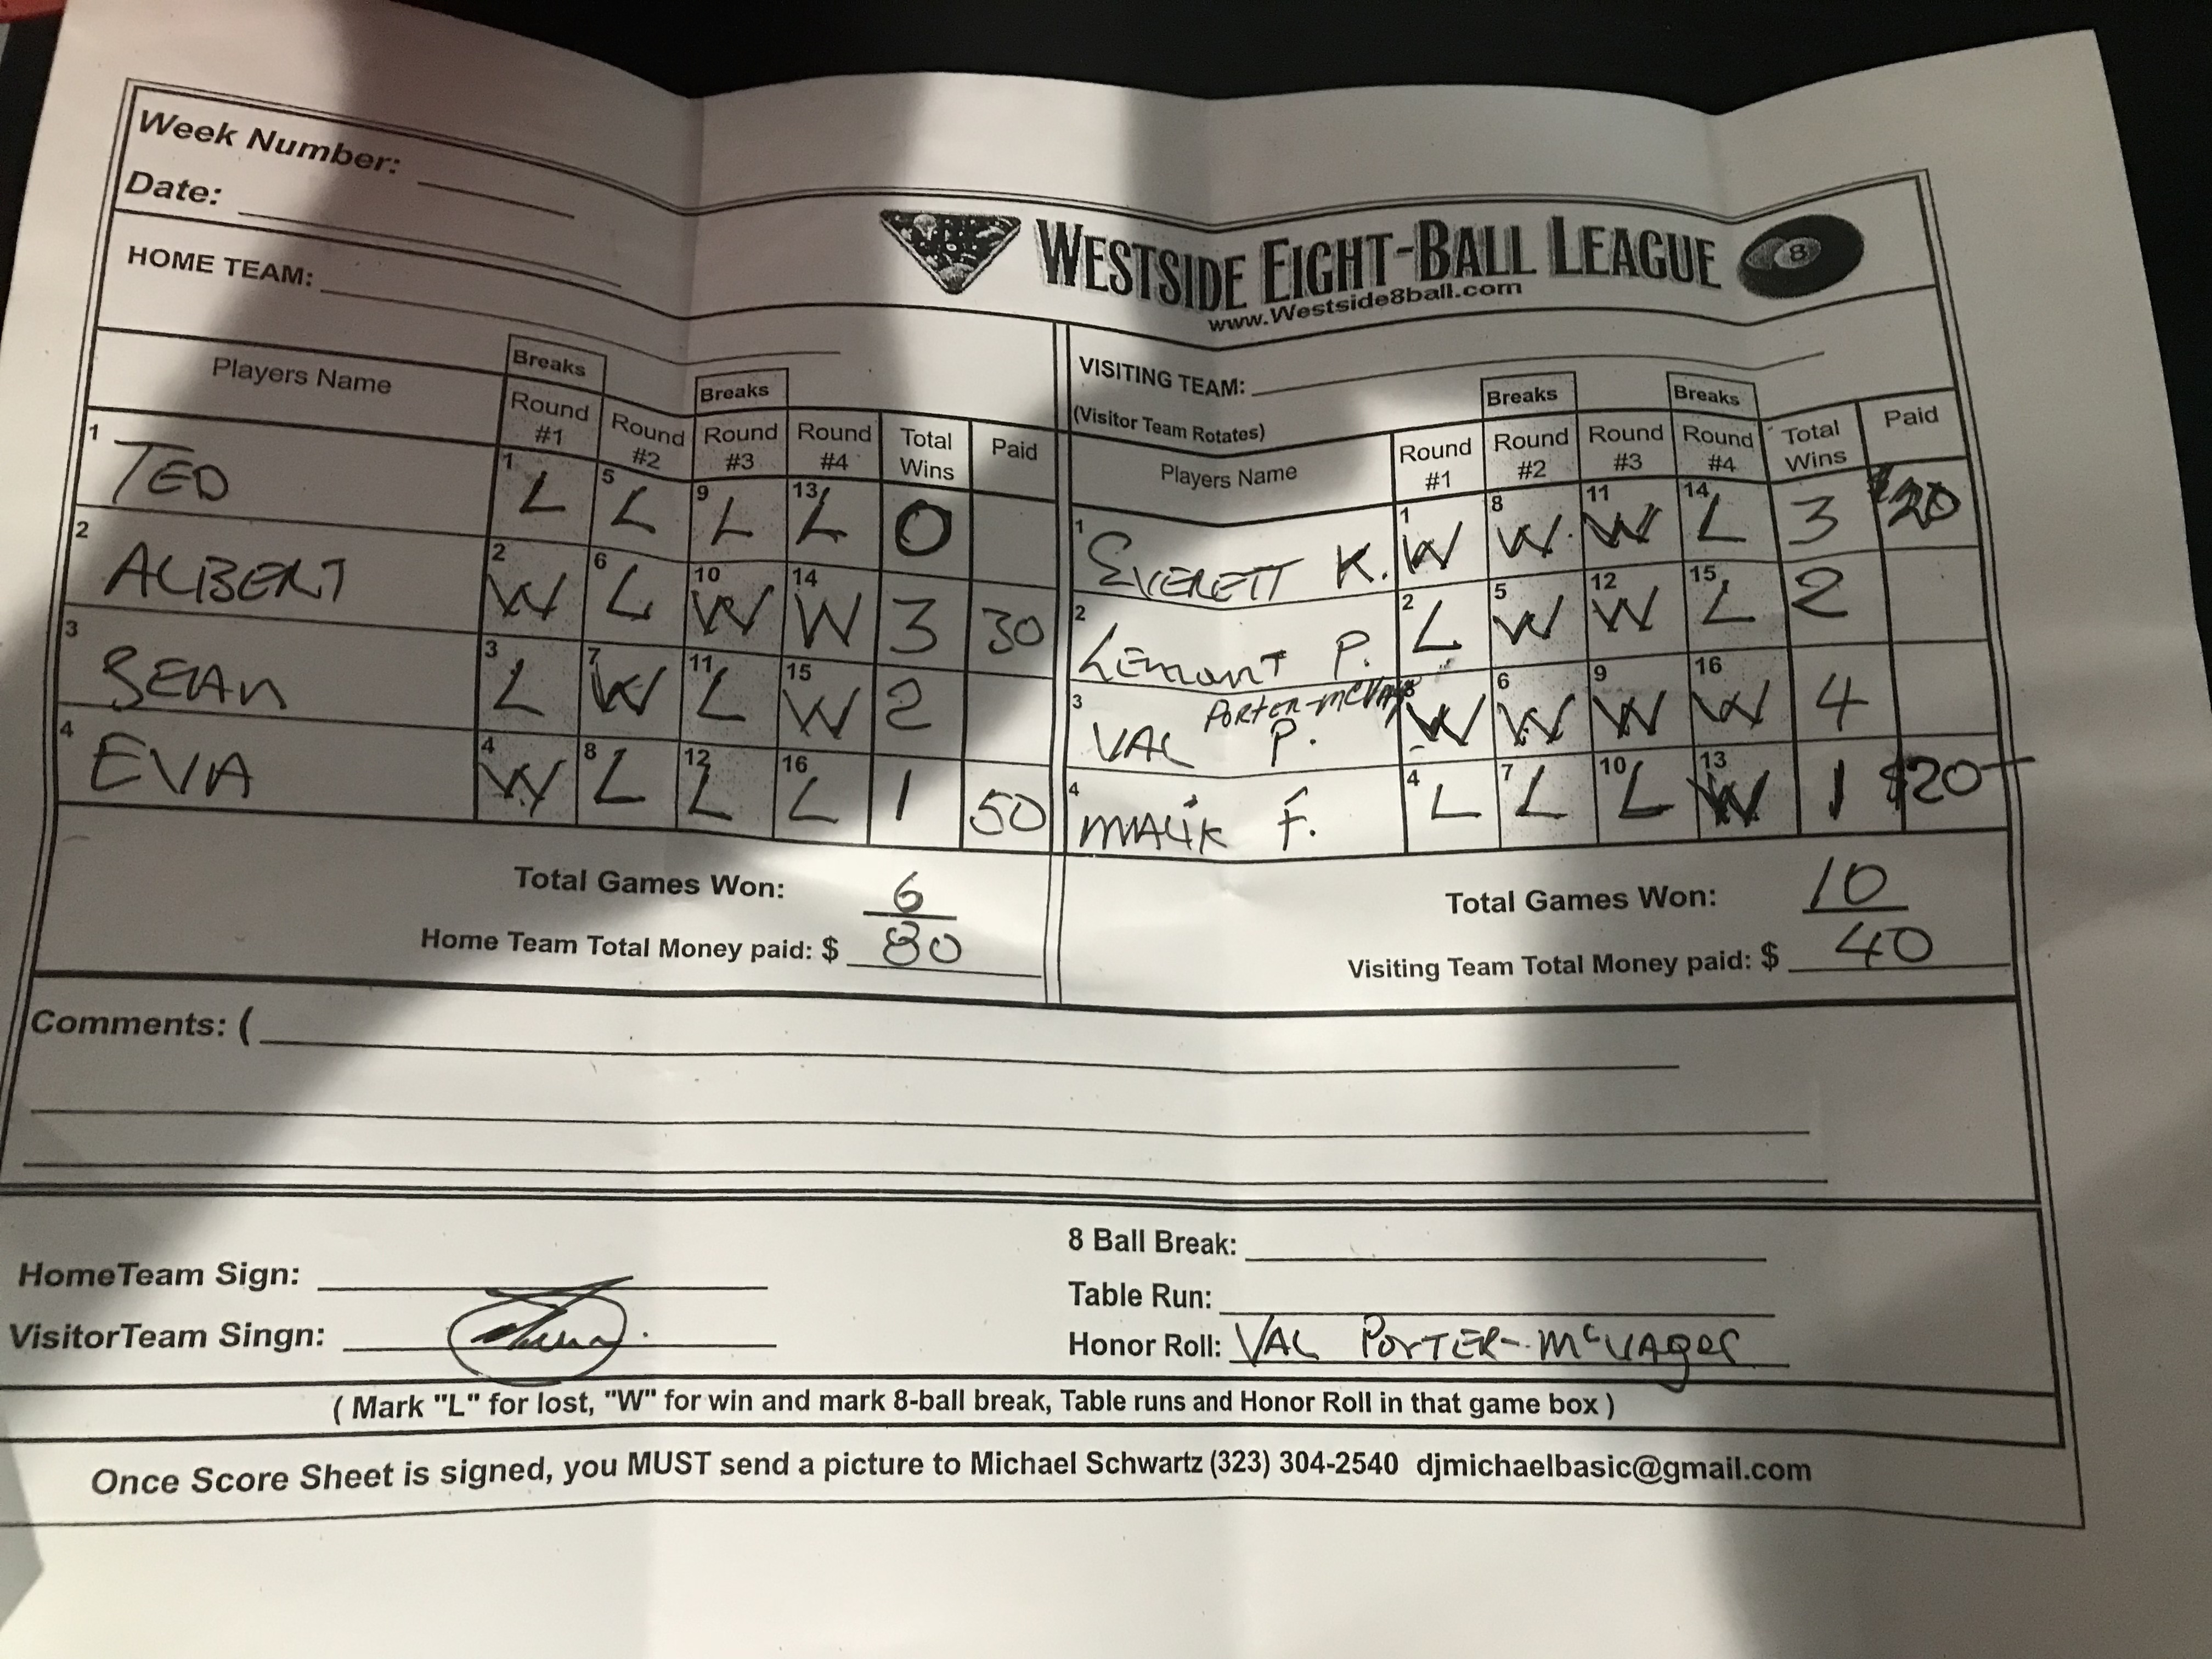 Week Number:
Date:
HOME TEAM:
WESTSIDE EIGHT-BALL LEAGUE 8
www.Westside8ball.com
VISITING TEAM:
(Visitor Team Rotates)
Players Name Breaks Round #1 Round #2 Breaks Round #3 Round #4 Total Wins Paid
1 TED 1 L 5 L 9 L 13 L 0
2 ALBERT 2 W 6 L 10 W 14 W 3 30
3 SEAN 3 L 7 W 11 L 15 W 2
4 EVA 4 W 8 L 12 L 16 L 1 50
Total Games Won: 6
Home Team Total Money paid: $ 80
Players Name Round #1 Breaks Round #2 Round #3 Breaks Round #4 Total Wins Paid
1 EVERETT K. 1 W 8 W 11 W 14 L 3 $20
2 LEMONT P. 2 L 5 W 12 W 15 L 2
3 VAL P. 3 W 6 W 9 W 16 W 4
4 MALIK F. 4 L 7 L 10 L 13 W 1 $20
Total Games Won: 10
Visiting Team Total Money paid: $ 40
Comments: (
HomeTeam Sign:
VisitorTeam Singn:
8 Ball Break:
Table Run:
Honor Roll: VAL PORTER-McVAGES
( Mark "L" for lost, "W" for win and mark 8-ball break, Table runs and Honor Roll in that game box )
Once Score Sheet is signed, you MUST send a picture to Michael Schwartz (323) 304-2540 djmichaelbasic@gmail.com